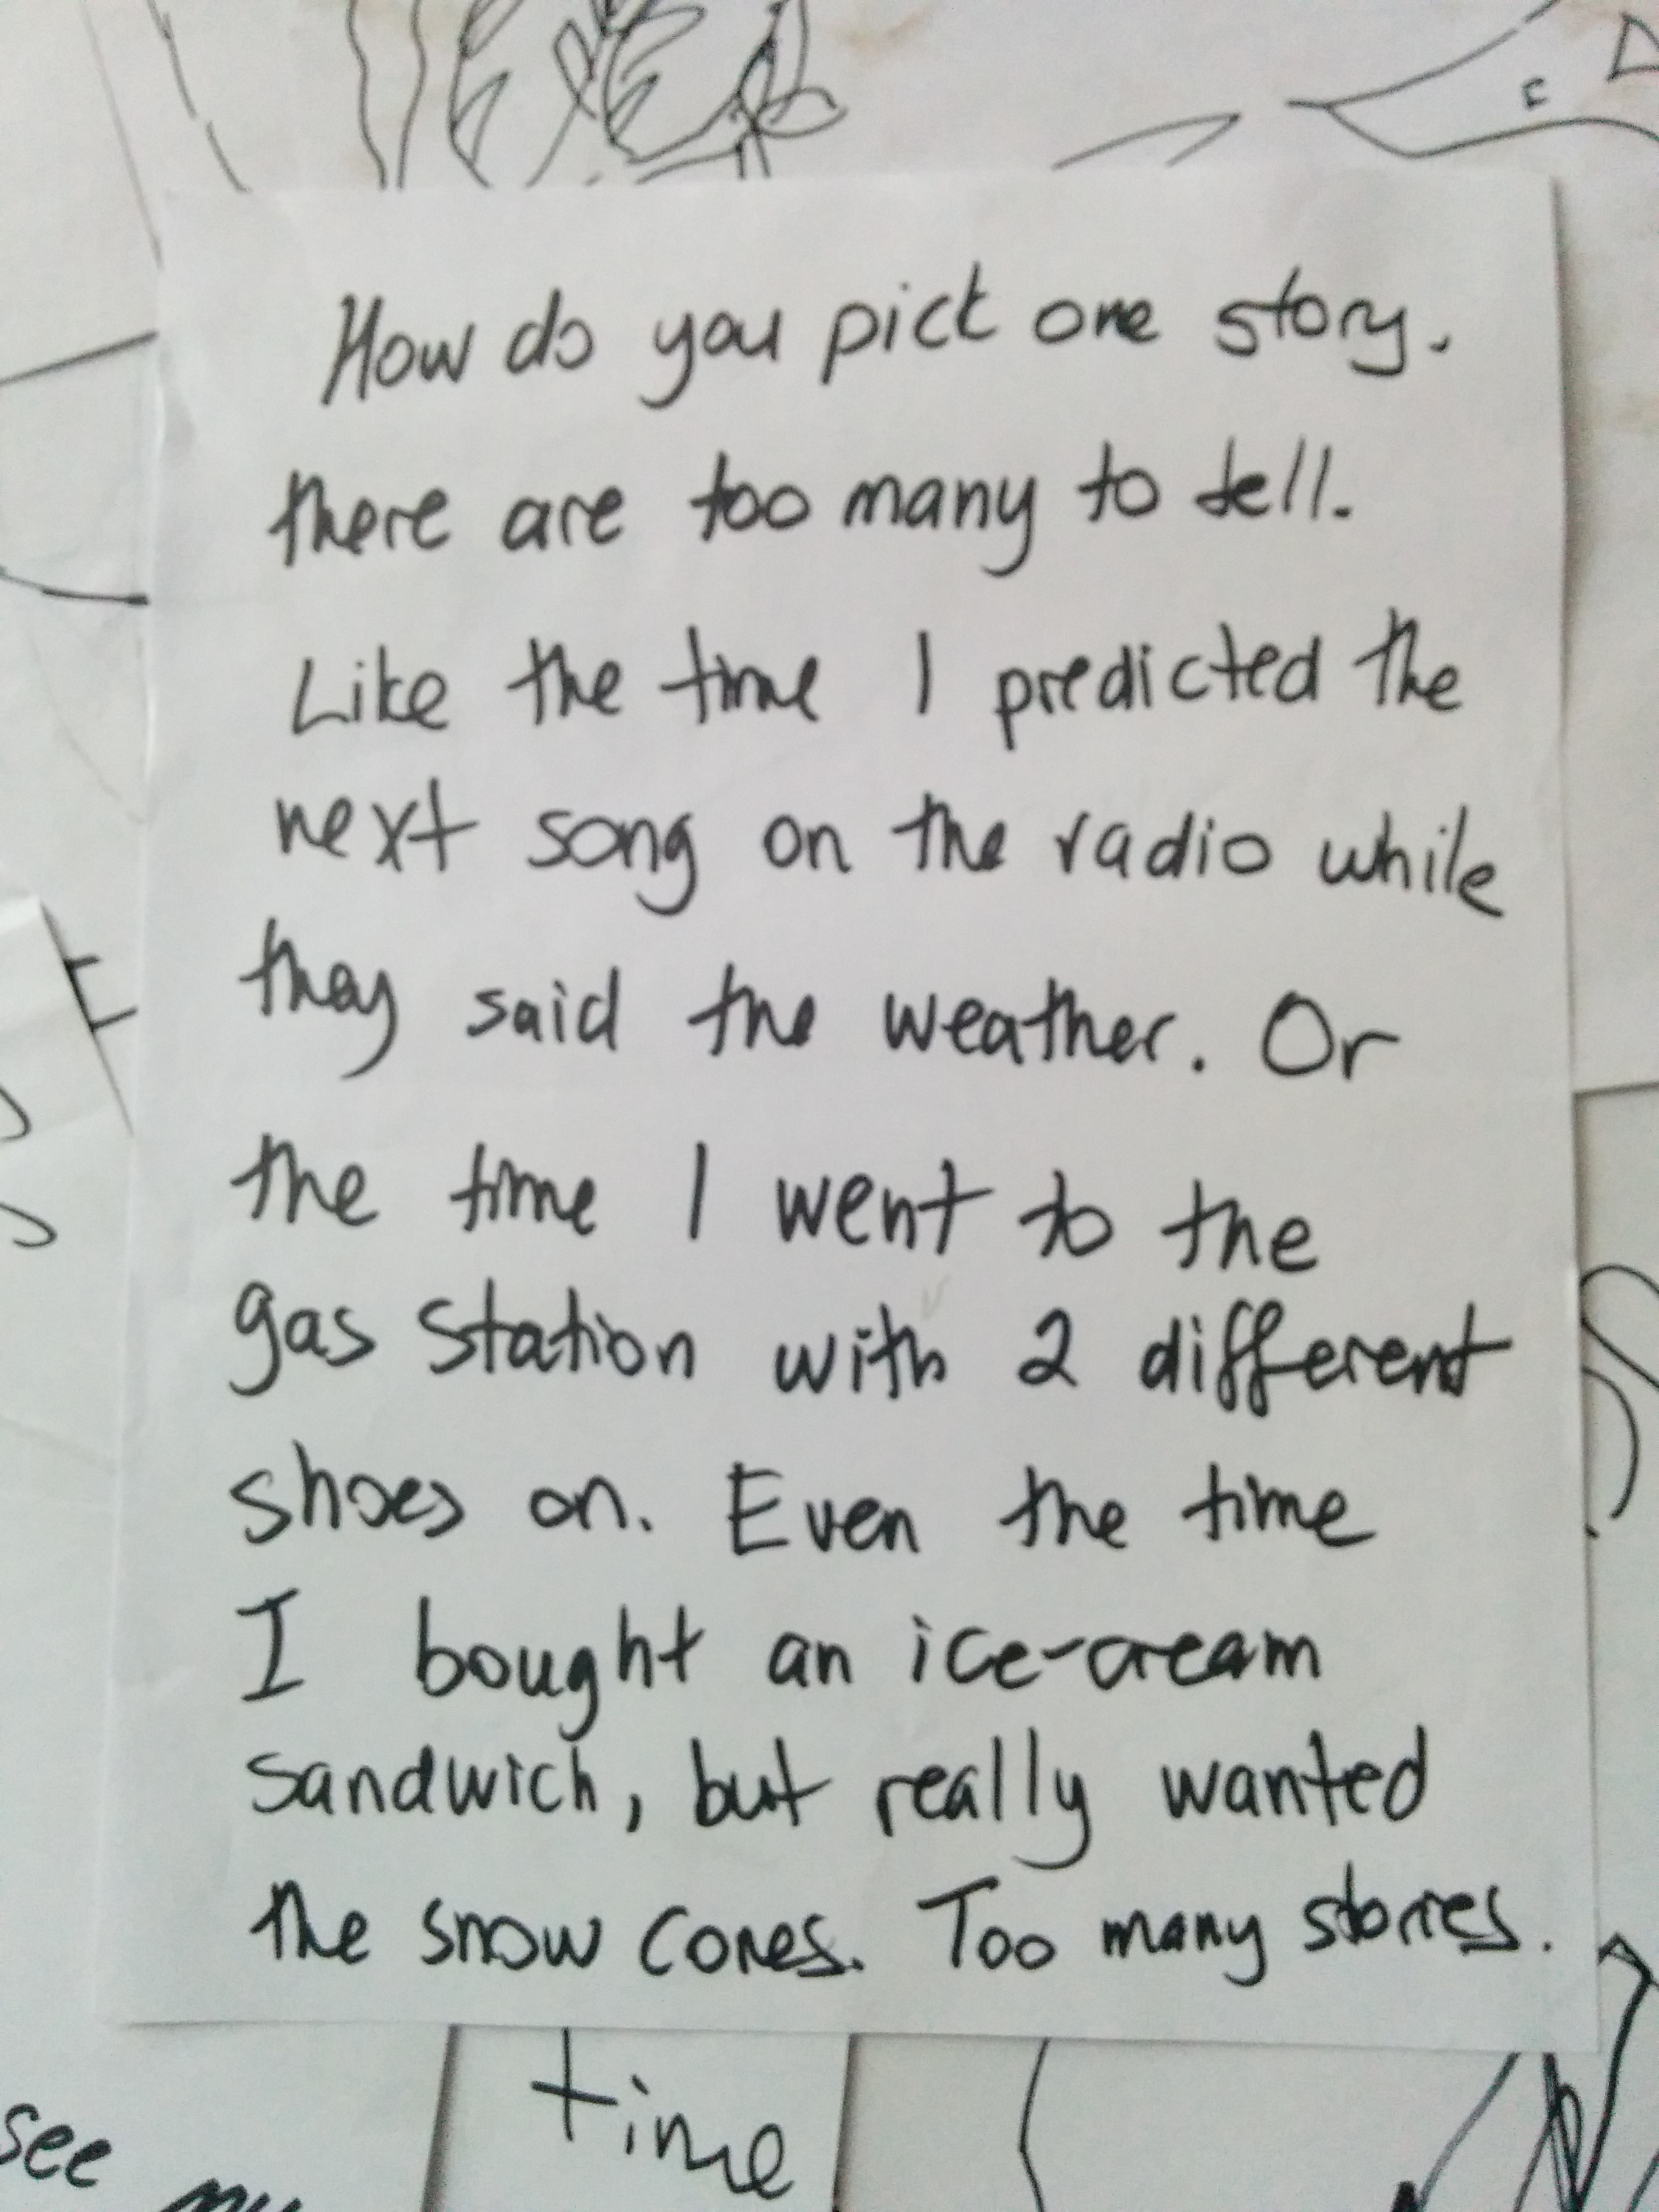 How do you pick one story.
there are too many to tell.
Like the time I predicted the
next song on the radio while
they said the weather. Or
the time I went to the
gas station with 2 different
shoes on. Even the time
I bought an ice-cream
sandwich, but really wanted
the snow cones. Too many stories.
time
see